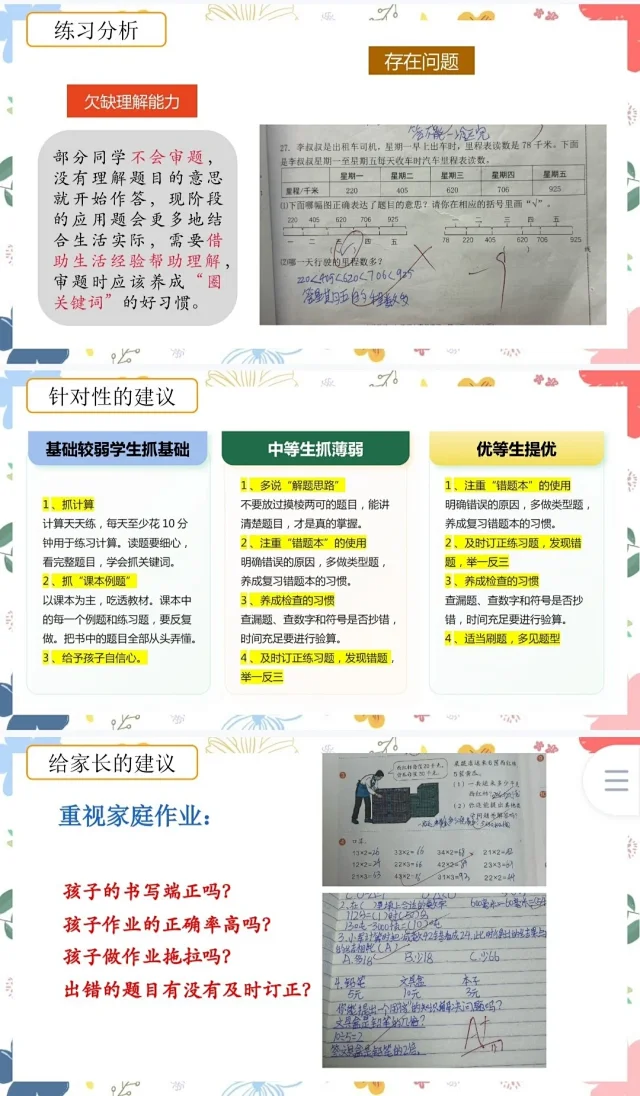 练习分析
存在问题
欠缺理解能力
部分同学不会审题，
没有理解题目的意思
就开始作答，现阶段
的应用题会更多地结
合生活实际，需要借
助生活经验帮助理解，
审题时应该养成“圈
关键词”的好习惯。
27. 李叔叔是出租车司机，星期一早上出车时，里程表读数是 78 千米。下面
是李叔叔星期一至星期五每天收车时汽车里程表读数。
星期一 星期二 星期三 星期四 星期五
里程/千米 220 405 620 706 925
⑴下面哪幅图正确表达了题目的意思？请你在相应的括号里画“√”。
220 405 620 706 925
一 二 三 四 五
一 二 三 四 五
78 220 405 620 706 925
⑵哪一天行驶的里程数多？
220<405<620<706<925
针对性的建议
基础较弱学生抓基础
1、抓计算
计算天天练，每天至少花 10 分
钟用于练习计算。读题要细心，
看完整题目，学会抓关键词。
2、抓“课本例题”
以课本为主，吃透教材。课本中
的每一个例题和练习题，要反复
做。把书中的题目全部从头弄懂。
3、给予孩子自信心。
中等生抓薄弱
1、多说“解题思路”
不要放过摸棱两可的题目，能讲
清楚题目，才是真的掌握。
2、注重“错题本”的使用
明确错误的原因，多做类型题，
养成复习错题本的习惯。
3、养成检查的习惯
查漏题、查数字和符号是否抄错，
时间充足要进行验算。
4、及时订正练习题，发现错题，
举一反三
优等生提优
1、注重“错题本”的使用
明确错误的原因，多做类型题，
养成复习错题本的习惯。
2、及时订正练习题，发现错
题，举一反三
3、养成检查的习惯
查漏题、查数字和符号是否抄
错，时间充足要进行验算。
4、适当刷题，多见题型
给家长的建议
重视家庭作业：
孩子的书写端正吗？
孩子作业的正确率高吗？
孩子做作业拖拉吗？
出错的题目有没有及时订正？
13×2=26 33×2=66 34×2=68 21×2=42
12×2=24 22×3=66 42×2=84 23×3=69
21×3=63 43×2=86 31×3=93 22×2=44
A.多18 B.少18 C.少66
4.铅笔 文具盒 本子
5元 10元 3元
文具盒是铅笔的几倍？
10÷5=2
答:文具盒是铅笔的2倍。
A+